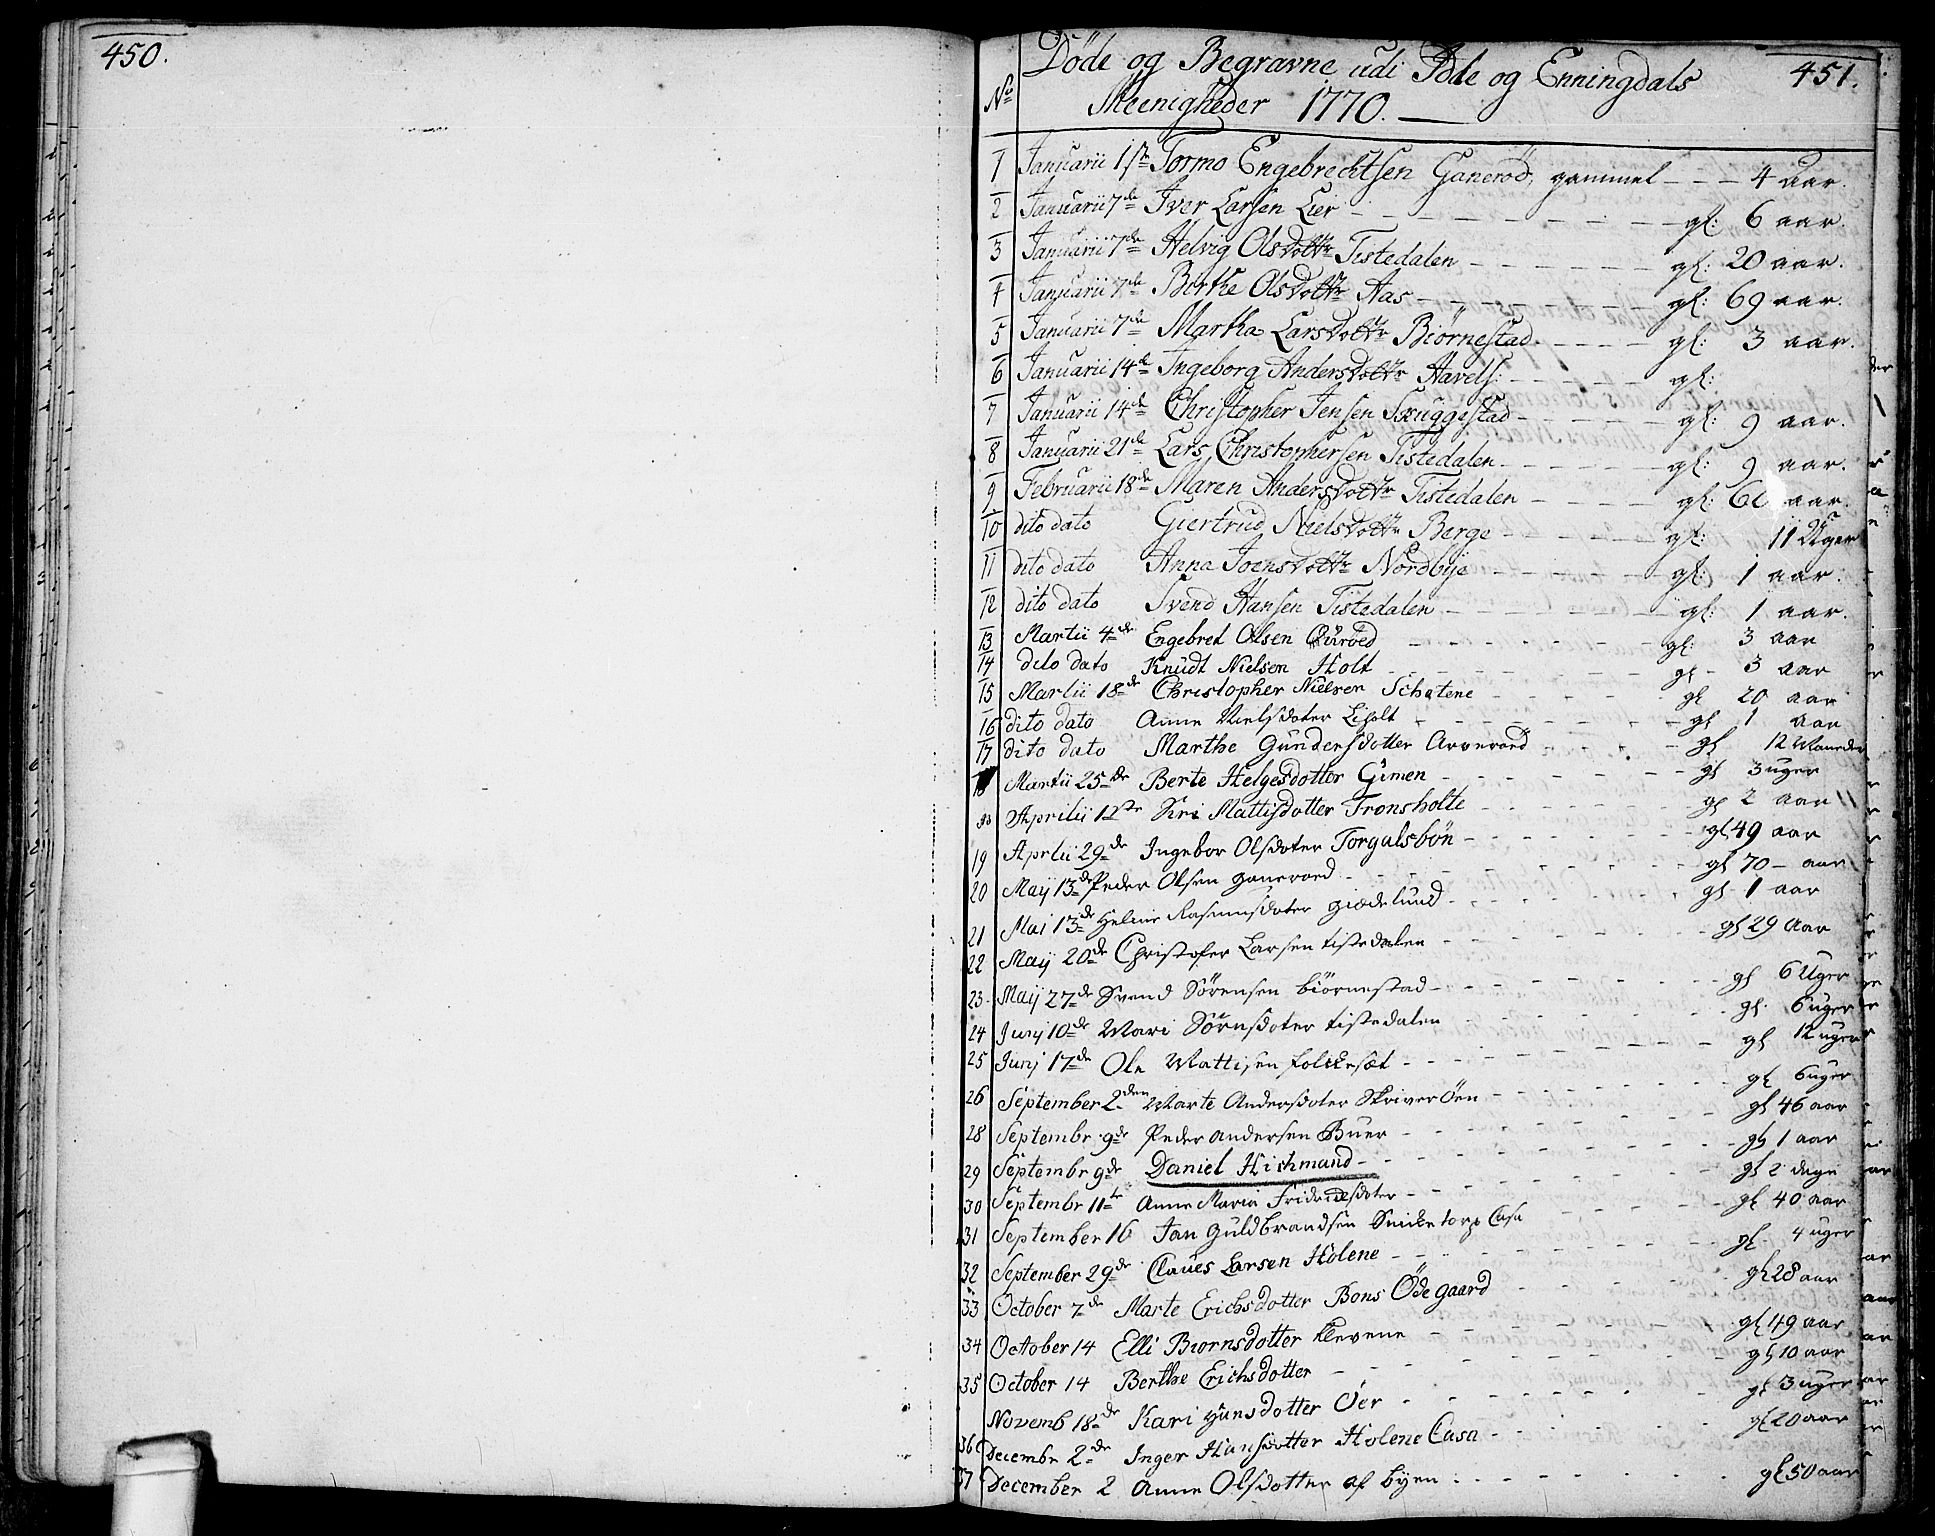 450.
Döde og Begravne udi Idde og Enningdals 451.
No Meenigheder 1770.
1 Januarii 1ste Tormo Engebrechtsen Ganeröd, gammel - - - 4 aar.
2 Januarii 7de Iver Larsen Lier - - - gl: 6 aar.
3 Januarii 7de Helvig Olsdottr Tistedalen - - - gl: 20 aar.
4 Januarii 7de Birthe Olsdottr Aas - - - gl: 69 aar.
5 Januarii 7de Martha Larsdottr Biörnestad - - - gl: 3 aar.
6 Januarii 14de Ingeborg Andersdottr Aavels: - - - gl:
7 Januarii 14de Christopher Jensen Skuggestad - - - gl: 9 aar.
8 Januarii 21de Lars Christophersen Tistedalen - - - gl: 9 aar.
9 Februarii 18de Maren Andersdottr Tistedalen - - - gl: aar.
10 dito dato Giertrud Nielsdottr Berge - - - gl: 11 Uger
11 dito dato Anna Joensdottr Nordbye - - - gl: 1 aar.
12 dito dato Svend Hansen Tistedalen - - - gl: 1 aar.
13 Martii 4de Engebret Olsen - - - gl: 3 aar
14 dito dato Knudt Nielsen Holt - - - gl - 3 aar
15 Martii 18de Christopher Nielsen Schotene - - - gl 20 aar
16 dito dato Anne Nielsdoter Liholt - - - gl 1 aar
17 dito dato Marthe Gundersdotter Arveroed - - - gl 12 Maaneder
Martii 25de Berte Helgesdotter Gimen - - - gl 3 uger
Aprilii 12te Siri Mattisdotter Fronsholte - - - gl 2 aar
19 Aprlii 29de Ingebor Olsdoter Torgalsbön - - - gl 49 aar
20 Maij 13de Peder Olsen ganeroed - - - gl 70 - aar
21 Mai 13de Helene Rasmusdoter giedelund - - - gl 1 aar
22 Maij 20de Christofer Larsen tistedalen - - - gl 29 aar
23 Maij 27de Svend Sörensen biörnestad - - - gl 6 Uger
24 Junj 10de Mari Sörnsdoter tistedalen - - - gl 6 uger
25 Junj 17de Ole Mattisen folckesæt - - - gl 12 uger
26 September 2den Marte Andersdoter SkriverÖen - - - gl 6 uger
28 Septembr 9de Peder andersen Buer - - - gl 46 aar
29 Septembr 9de Daniel Hichmand - - - gl 1 aar
30 Septembr 11te Anne Maria Fridericsdoter - - - gl 2 dage
31 September 16 Jan Guldbrandsen Snicketorp Casa gl 40 aar
32 September 29de Claues Larsen Holene - - - gl - 4 uger
33 October 7de Marte Erichsdotter Bons Ödegaard - - - gl 28 aar
34 October 14 Elli Biornsdotter Klevene - - - gl 49 aar
35 October 14 Berthe Erichsdotter - - - gl 10 aar
Novemb 18de Kari Hansdotter Öer - - - gl 3 uger
36 Decembr 2de Inger Hansdotter Holene Casa - - - gl 20 aar
37 December 2 Anne Olsdotter af byen - - - gl 50 aar